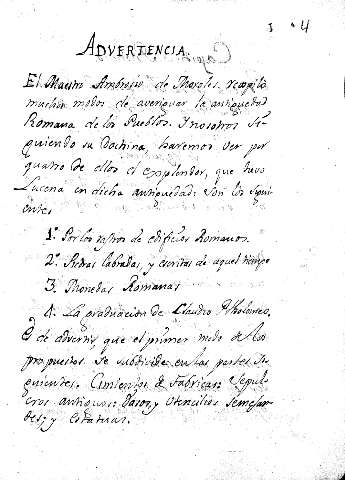 3 4
ADVERTENCIA.
El Maestro Ambrosio de Morales, recopiló
muchos modos de averiguar la antiguedad
Romana de los Pueblos. Y nosotros si-
guiendo su Doctrina, haremos ver por
quatro de ellos el explendor, que tuvo
Lucena en dicha antiguedad: Son los sigui-
entes
1.º Por los rastros de edificios Romanos.
2.º Piedras labradas, y escritas de aquel tiempo
3. Monedas Romanas
4. La graduacion de Claudio Ptholomeo.
Es de advertir, que el primer modo de los
propuestos. Se subdivide en las partes si-
guientes. Cimientos de Fabricas: Sepul-
cros antiguos: Vasos, y Utencilios semejan-
tes; y estatuas.